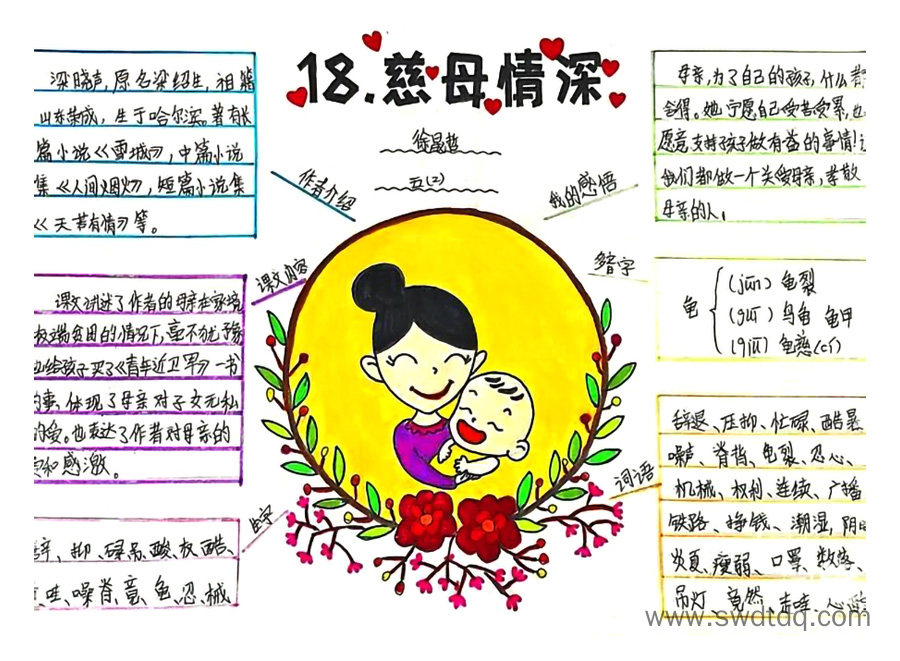 18.慈母情深
徐昌哲
五(2)
作者介绍
梁晓声,原名梁绍生,祖籍
山东荣成,生于哈尔滨。著有长
篇小说《雪城》,中篇小说
集《人间烟火》,短篇小说集
《天若有情》等。
课文内容
课文讲述了作者的母亲在家境
极端贫困的情况下,毫不犹豫
地给孩子买了《青年近卫军》一书
的事,体现了母亲对子女无私
的爱。也表达了作者对母亲的
和感激。
生字
辞、抑、碌、吊、酸、权、酷、
哇、噪、脊、竟、龟、忍、械
我的感悟
母亲,为了自己的孩子,什么都
舍得。她宁愿自己受苦受累,也
愿意支持孩子做有益的事情!让
我们都做一个关爱母亲,孝敬
母亲的人。
多音字
龟
(jūn) 龟裂
(guī) 乌龟 龟甲
(qiū) 龟慈(cí)
词语
辞退、压抑、忙碌、酷暑
噪声、脊背、龟裂、忍心、
机械、权利、连续、广播
铁路、挣钱、潮湿,阴暗
炎夏、瘦弱、口罩、数落、
吊灯、竟然、走哇、心酸
www.swdtdq.com